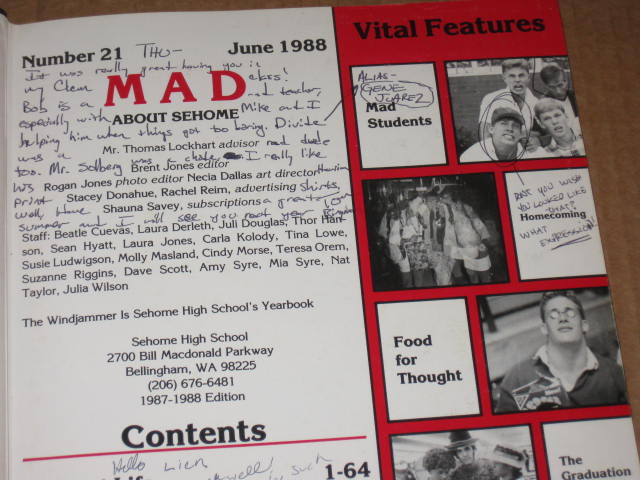 Number 21 THU- June 1988
It was really great having you in
my Chem classes!
MAD
Bob is a rad teacher,
especially with Mike and I
ABOUT SEHOME
helping him when things got too boring. Divide
Mr. Thomas Lockhart advisor
was a rad dude
too. Mr. Solberg was a I really like
Brent Jones editor
Rogan Jones photo editor Necia Dallas art director
Print shirts,
Stacey Donahue, Rachel Reim, advertising
well, Have a great
Shauna Savey, subscriptions
summer and I will see you next year
Staff: Beatle Cuevas, Laura Derleth, Juli Douglas, Thor Han-
son, Sean Hyatt, Laura Jones, Carla Kolody, Tina Lowe,
Susie Ludwigson, Molly Masland, Cindy Morse, Teresa Orem,
Suzanne Riggins, Dave Scott, Amy Syre, Mia Syre, Nat
Taylor, Julia Wilson
The Windjammer Is Sehome High School's Yearbook
Sehome High School
2700 Bill Macdonald Parkway
Bellingham, WA 98225
(206) 676-6481
1987-1988 Edition
Contents
Hello Lien,
such
1-64
Vital Features
ALIAS-
GENE
JUAREZ
Mad
Students
DON'T YOU WISH
YOU LOOKED LIKE
THAT?
Homecoming
WHAT
EXPRESSION!
Food
for
Thought
The
Graduation